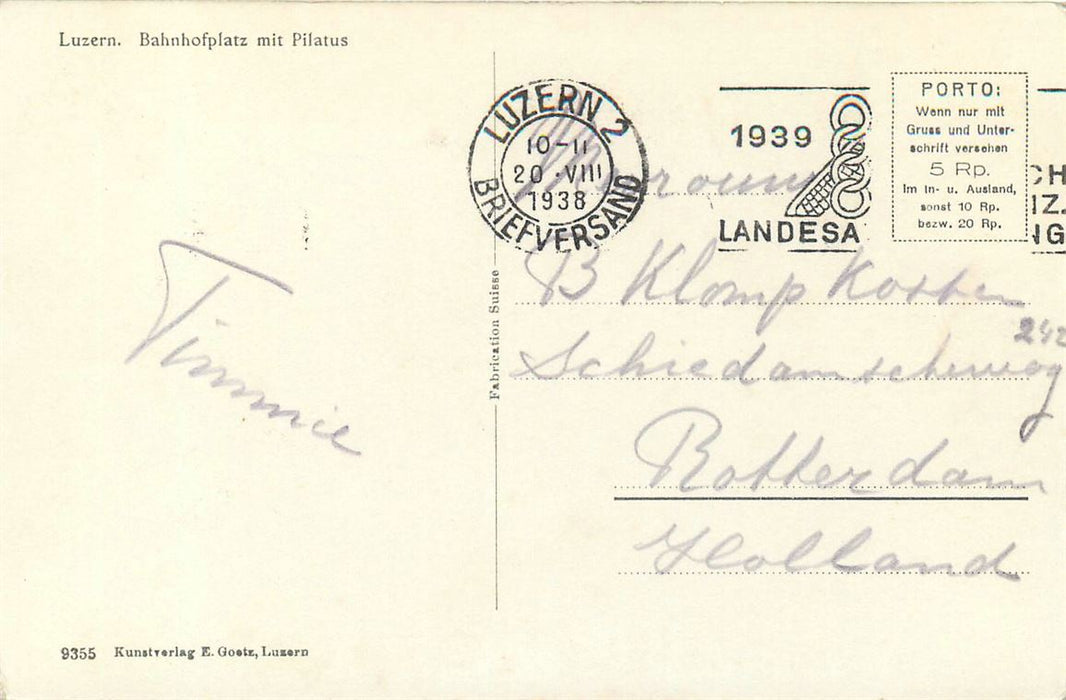 Luzern. Bahnhofplatz mit Pilatus
LUZERN 2
10-11
20·VIII
1938
BRIEFVERSAND
1939
LANDESA
CH
IZ.
NG
PORTO:
Wenn nur mit
Gruss und Unter-
schrift versehen
5 Rp.
im In- u. Ausland,
sonst 10 Rp.
bezw. 20 Rp.
Timmie
Fabrication Suisse
B Klomp
242
Schiedamscheweg
Rotterdam
Holland
9355 Kunstverlag E. Goetz, Luzern